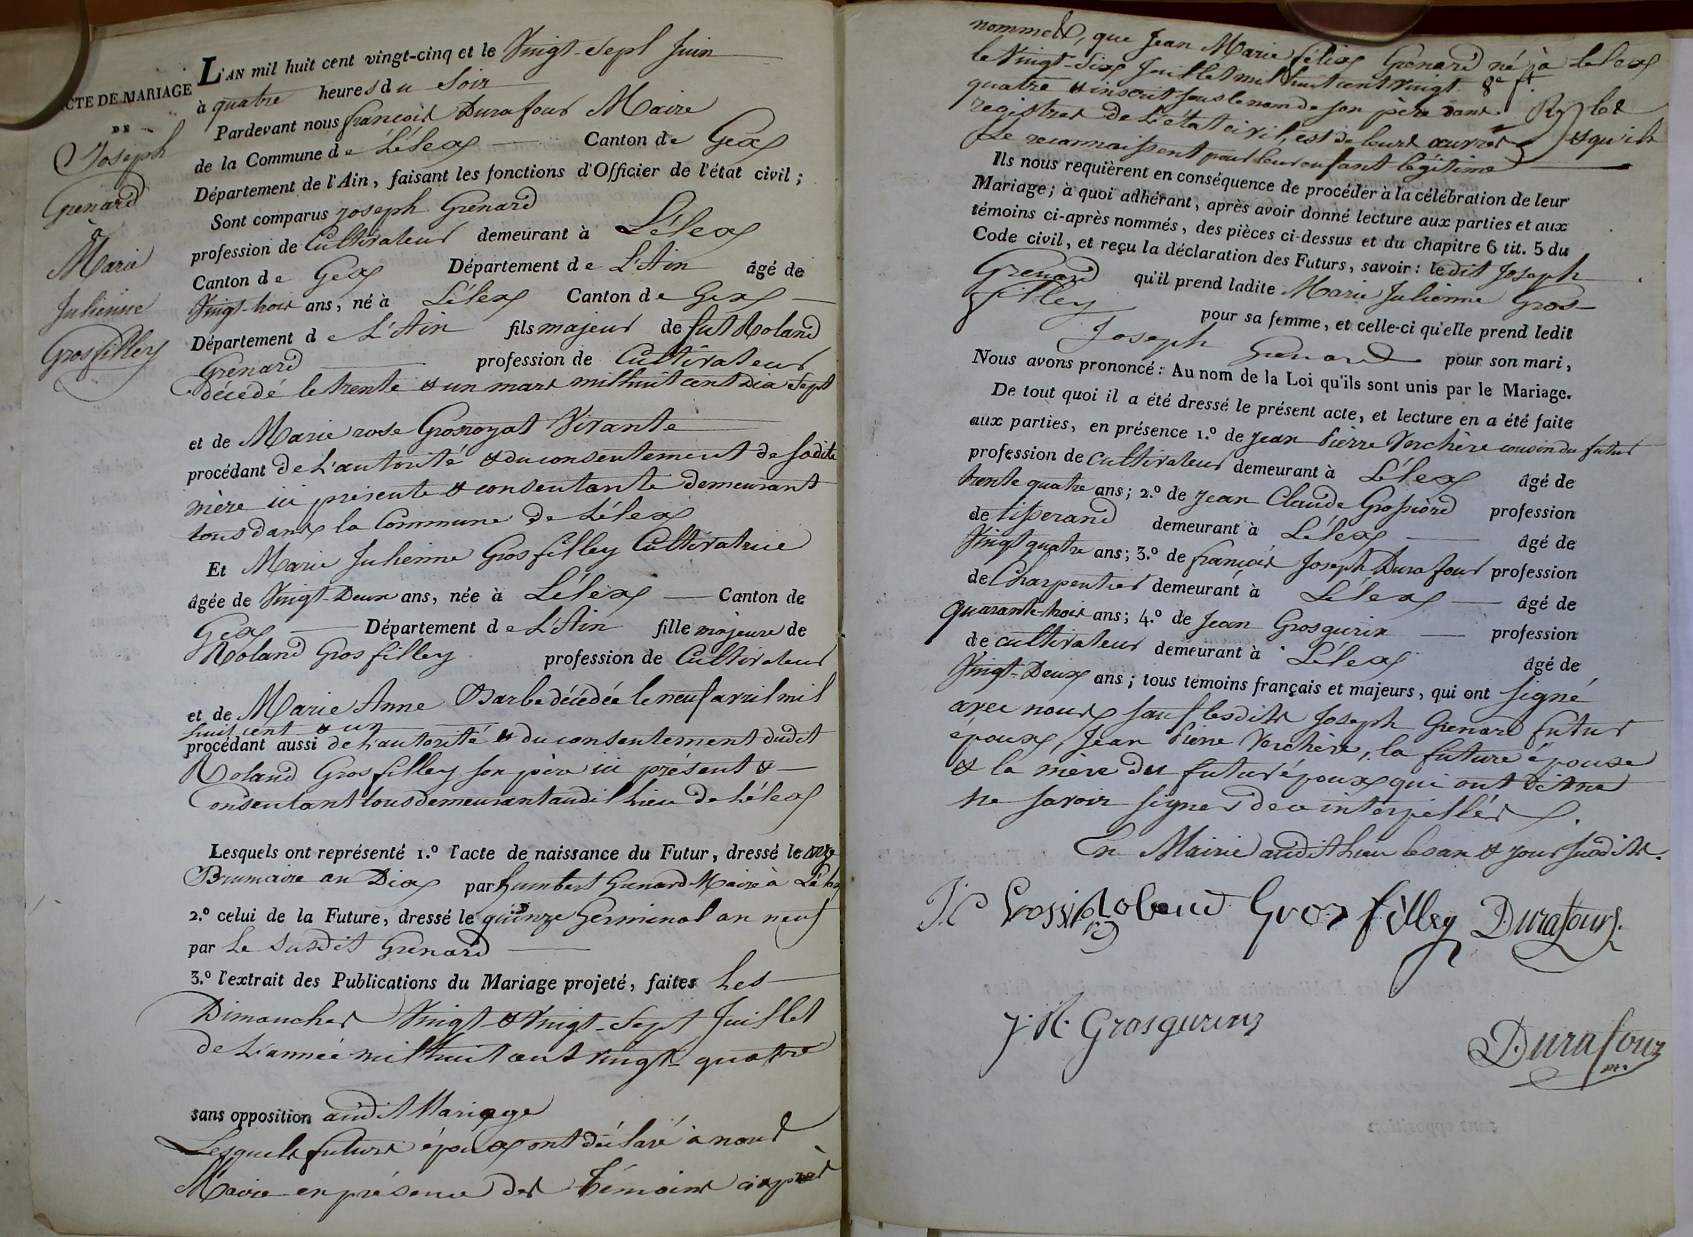 ACTE DE MARIAGE
DE
Joseph
Grenard
à
Marie
Julienne
Grosfilley
L'AN mil huit cent vingt-cinq et le Vingt-Sept Juin
à quatre heures du Soir
Pardevant nous françois Durafour Maire
de la Commune de Lélex Canton de Gex
Département de l'Ain, faisant les fonctions d'Officier de l'état civil ;
Sont comparus joseph Grenard
profession de Cultivateur demeurant à Lélex
Canton de Gex Département de L'Ain âgé de
Vingt-trois ans, né à Lélex Canton de Gex
Département de L'Ain fils majeur de fut Roland
Grenard profession de Cultivateur
décédé le trente & un mars mil huit cent dix sept
et de Marie rose Grosroyat Vivante
procédant de L'autorité & du consentement de sadite
mère ici présente & consentante demeurant
tous dans la Commune de Lélex
Et Marie Julienne Grosfilley Cultivatrice
âgée de Vingt-Deux ans, née à Lélex Canton de
Gex Département de L'Ain fille majeure de
Roland Grosfilley profession de Cultivateur
et de Marie Anne Barbe décédée le neuf avril mil
huit cent & un
procédant aussi de L'autorité & du consentement dudit
Roland Grosfilley son père ici présent &
consentant tous demeurant audit lieu de Lélex
Lesquels ont représenté 1.º l'acte de naissance du Futur, dressé le onze
Brumaire an Dix par humbert Grenard Maire à Lélex
2.º celui de la Future, dressé le quinze Germinal an neuf
par Le Susdit Grenard
3.º l'extrait des Publications du Mariage projeté, faites Les
Dimanches Vingt & Vingt-Sept Juillet
de L'année mil huit cent vingt-quatre
sans opposition audit Mariage
Lesquels futurs époux ont déclaré à nous
Maire en présence des témoins ci après
nommés, que Jean Marie félix Grenard né à Lélex
le Vingt-Six Juillet mil huit cent vingt
quatre & inscrit sous le nom de son père dans
registres de L'état civil, est de leurs œuvres & qu'ils
Le reconnaissent pour leur enfant légitime
Ils nous requièrent en conséquence de procéder à la célébration de leur
Mariage ; à quoi adhérant, après avoir donné lecture aux parties et aux
témoins ci-après nommés, des pièces ci-dessus et du chapitre 6 tit. 5 du
Code civil, et reçu la déclaration des Futurs, savoir : ledit Joseph
Grenard qu'il prend ladite Marie Julienne Gros-
filley pour sa femme, et celle-ci qu'elle prend ledit
Joseph Grenard pour son mari,
Nous avons prononcé : Au nom de la Loi qu'ils sont unis par le Mariage.
De tout quoi il a été dressé le présent acte, et lecture en a été faite
aux parties, en présence 1.º de Jean Pierre Verchère cousin du futur
profession de Cultivateur demeurant à Lélex âgé de
trente quatre ans ; 2.º de Jean Claude Grossiord profession
de tisserand demeurant à Lélex âgé de
Vingt quatre ans ; 3.º de françois Joseph Durafour profession
de Charpentier demeurant à Lélex âgé de
quarante-trois ans ; 4.º de Jean Grosgurin profession
de cultivateur demeurant à Lélex âgé de
Vingt-Deux ans ; tous témoins français et majeurs, qui ont signé
avec nous sauf lesdits Joseph Grenard futur
époux, Jean Pierre Verchère, la future épouse
& la mère du futur époux qui ont dit ne
savoir signer de ce interpellés.
En Mairie audit lieu les an & jour susdits.
J.C Grossiord Roland Grosfilley Durafour
J. M. Grosgurin
Durafour